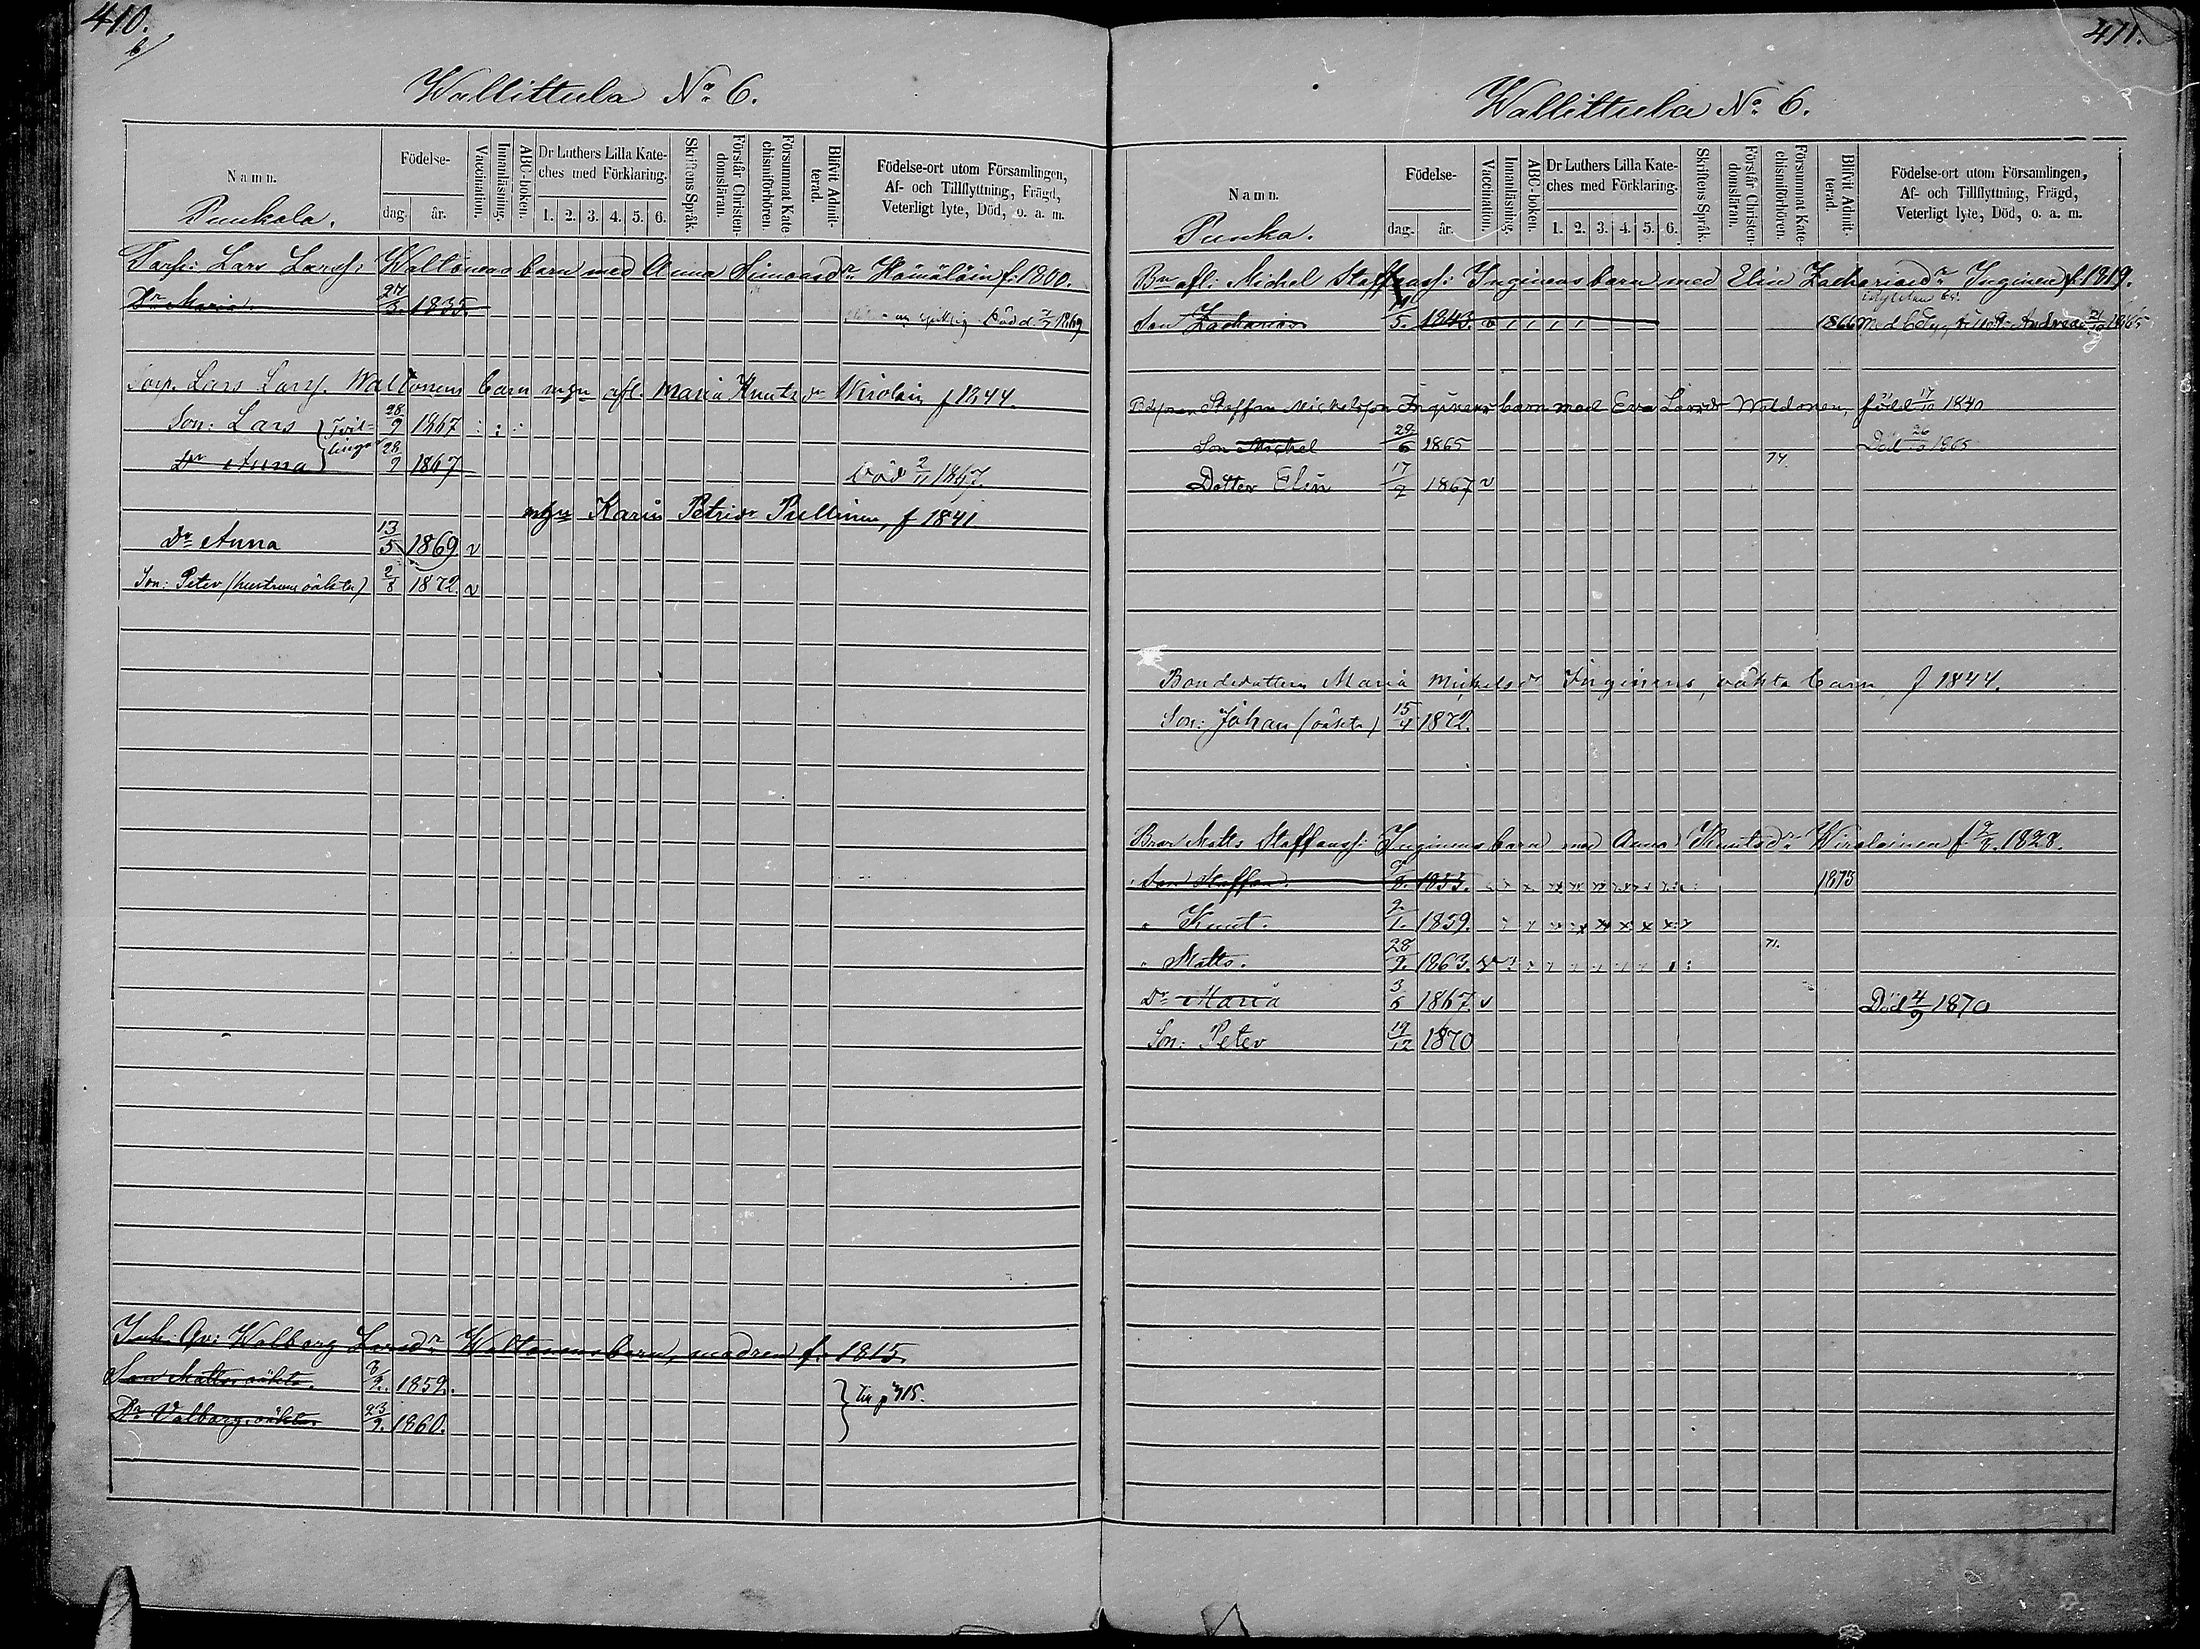 410.
Wallittula No 6.
Namn.
Punkala.
Födelse-
dag.
år.
Vaccination.
Innanläsning.
ABC-boken.
Dr Luthers Lilla Kate-
ches med Förklaring.
1. 2. 3. 4. 5. 6.
Skriftens Språk.
Förstår Christen-
domsläran.
Försummat Kate
chismiförhören.
Blifvit Admit-
terad.
Födelse-ort utom Församlingen,
Af- och Tillflyttning, Frägd,
Veterligt lyte, Död, o. a. m.
Lars Larss: Waltonens barn med Anna Simonsdr Hämäläin f. 1800.
Dr Maria. 27/3. 1835. Död 1869
Lars Larss. Waltonens barn m. afl. Maria Knutsdr Wirolain f 1844.
Son: Lars } Tvil- 28/9 1867
Dr Anna } lingar 28/9 1867 Död 2/11 1867.
Karin Petridr Pellinen, f 1841
Dr Anna 13/5 1869. v
Son: Peter (hustruns oäkta) 2/8 1872. v
Inh: Qv: Walborg Larsdr Waltonens barn, modren f. 1815.
Son Matts oäkta. 3/2. 1859.
Dr Valborg. oäkta. 23/9. 1860. } till p 415.
411.
Wallittula No 6.
Namn.
Punka.
Födelse-
dag.
år.
Vaccination.
Innanläsning.
ABC-boken.
Dr Luthers Lilla Kate-
ches med Förklaring.
1. 2. 3. 4. 5. 6.
Skriftens Språk.
Förstår Christen-
domsläran.
Försummat Kate-
chismiförhören.
Blifvit Admit-
terad.
Födelse-ort utom Församlingen,
Af- och Tillflyttning, Frägd,
Veterligt lyte, Död, o. a. m.
Bn afl: Michel Staffanss: Inginens barn med Elin Zachariasdr Inginen f. 1819.
Son Zacharias 5. 1843. v 1866 Med betyg 1865
Staffan Michelsson Inginens barn med Eva Larsdr Waldonen, född 17/10 1840
Son Michel 29/6 1865 Död 26 1865
74.
Dotter Elin 17/2 1867 v
Bondedottern Maria Michelsdr Inginens, oäkta barn, f 1844.
Son: Johan (oäkta) 15/4 1872.
Bror Matts Staffanss: Inginens barn med Anna Knutsdr Wirolainen f. 2/8. 1828.
Son Staffan. 8. 1855. 1873
" Knut. 2/1. 1859.
71.
" Matts. 28/9. 1863.
Dr Maria 3/6 1867. v Död 4/9 1870
Son: Peter 19/12 1870